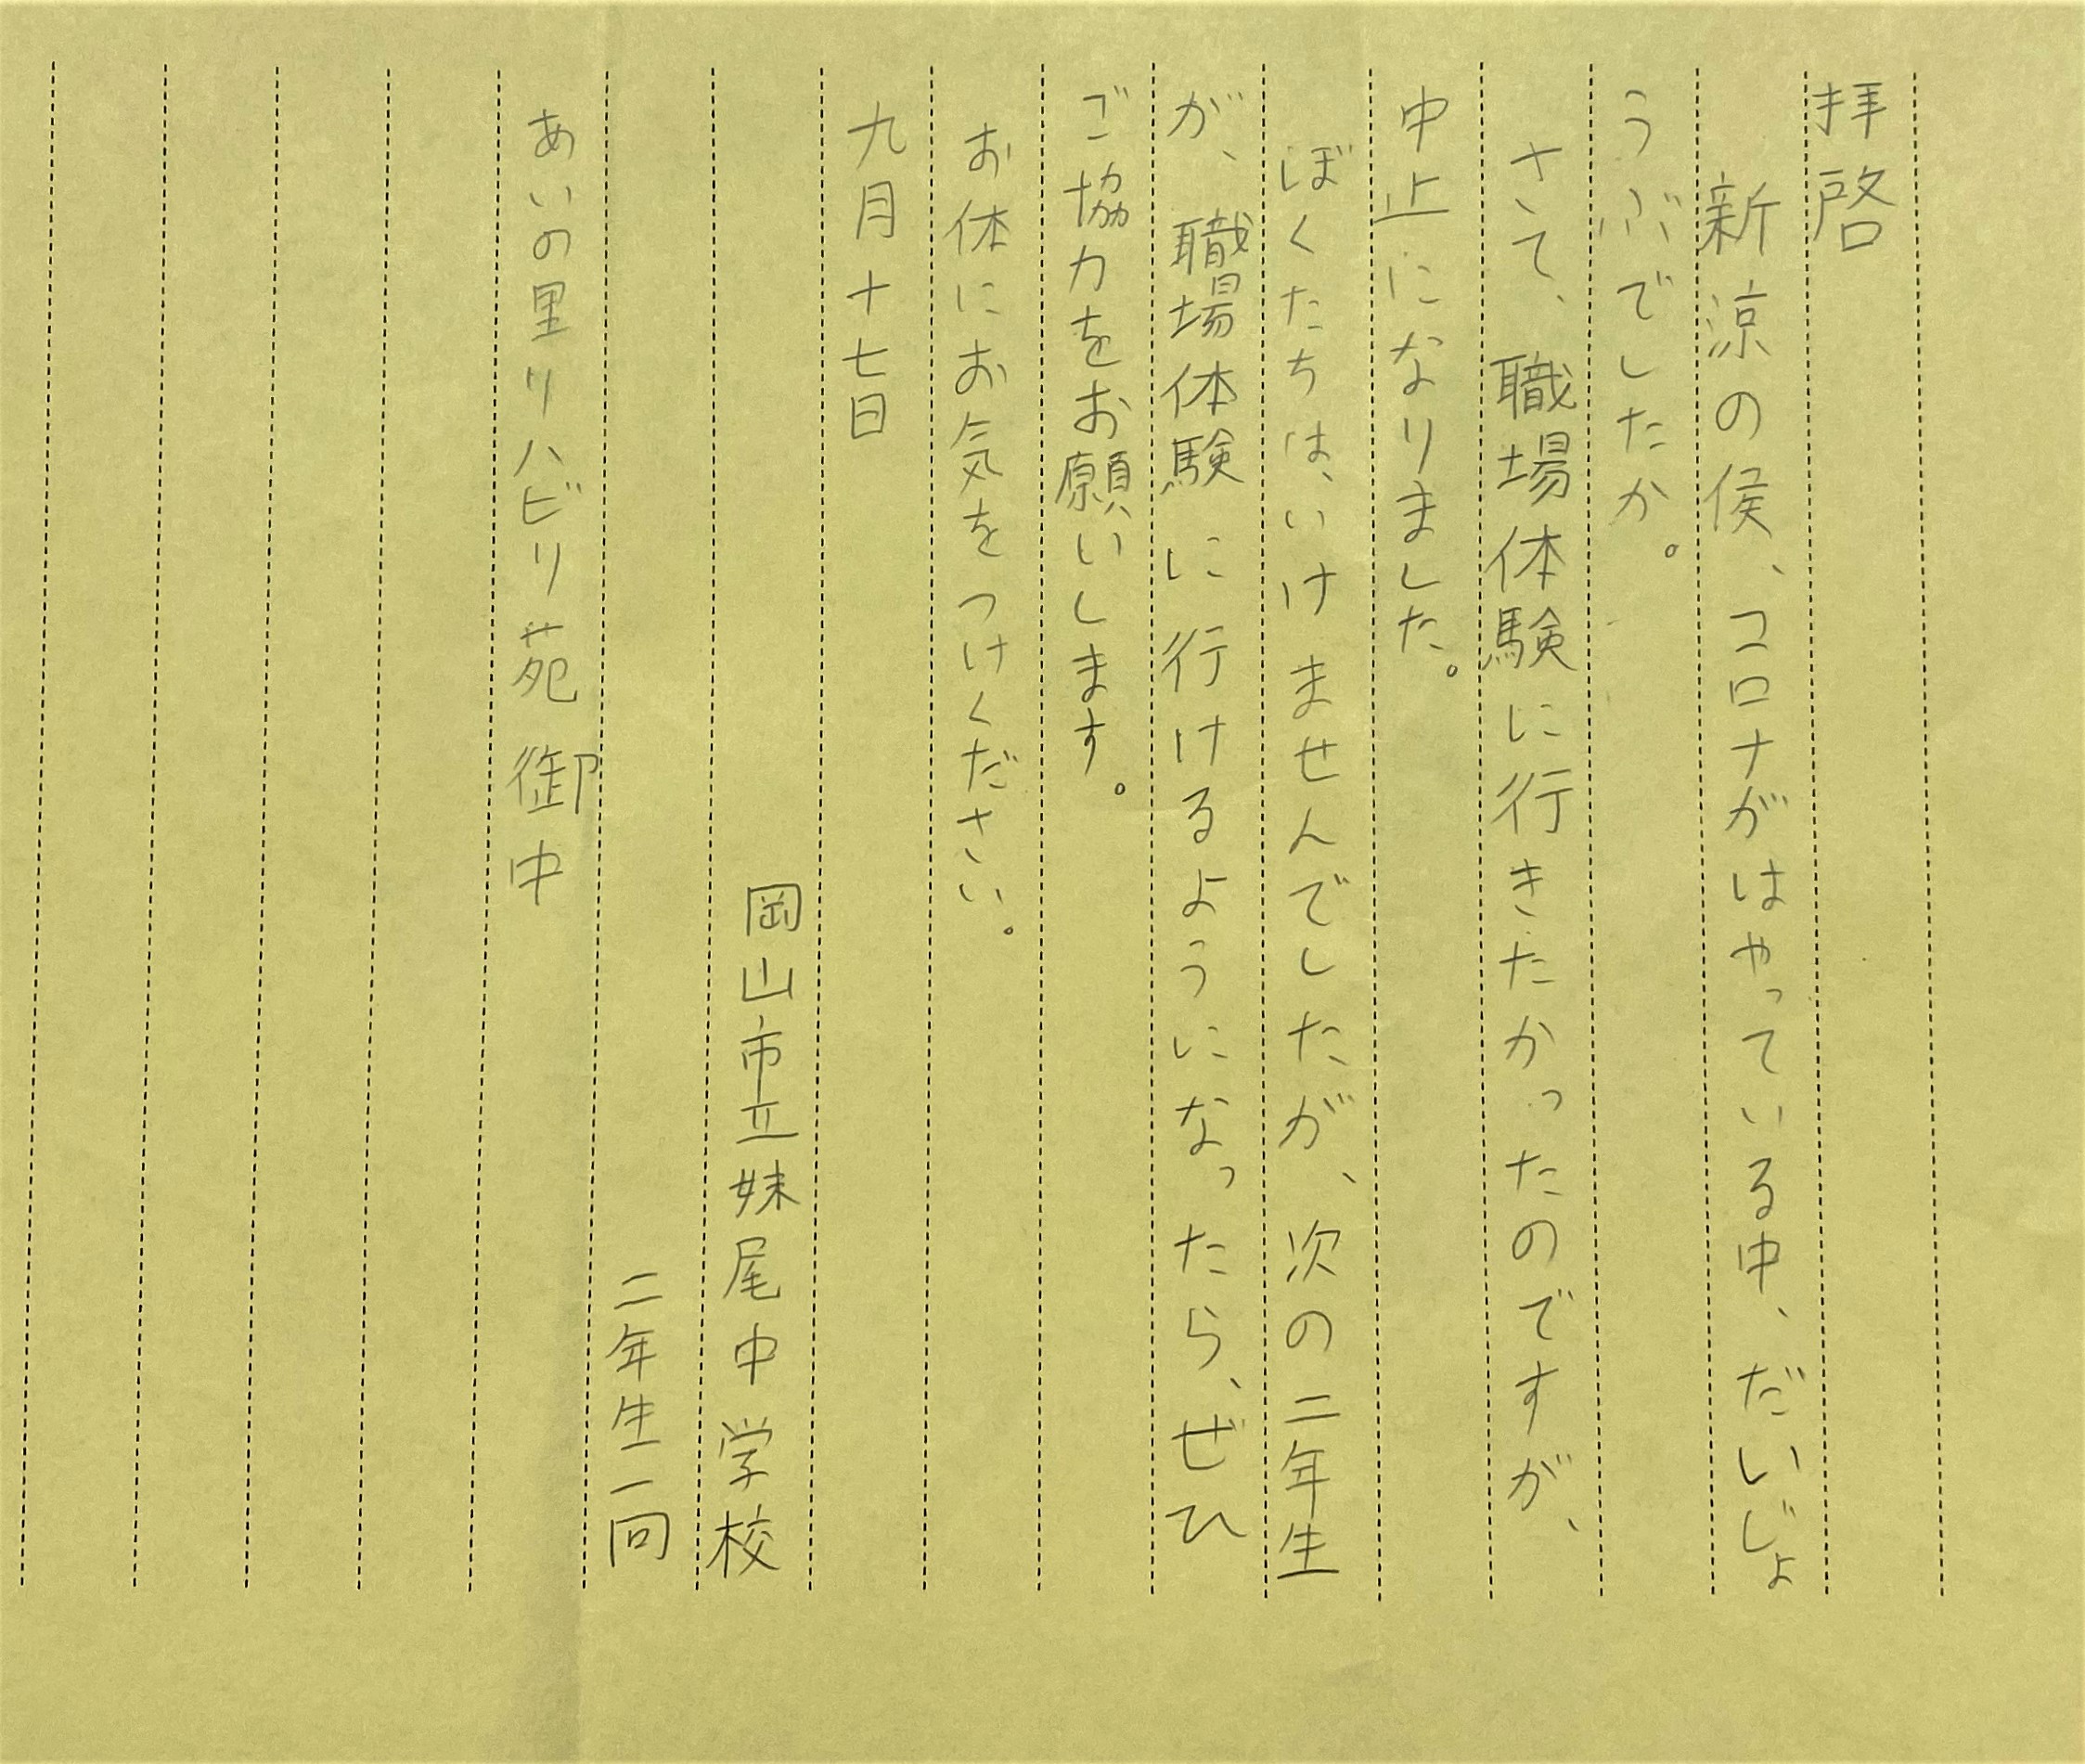 拝啓
新涼の侯、コロナがはやっている中、だいじょ
うぶでしたか。
さて、職場体験に行きたかったのですが、
中止になりました。
ぼくたちは、いけませんでしたが、次の二年生
が、職場体験に行けるようになったら、ぜひ
ご協力をお願いします。
お体にお気をつけください。
九月十七日
岡山市立妹尾中学校
二年生一同
あいの里リハビリ苑 御中